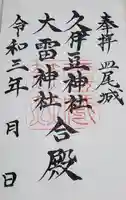 奉拝 皿尾城
久伊豆神社
大雷神社
合殿
令和三年 月 日